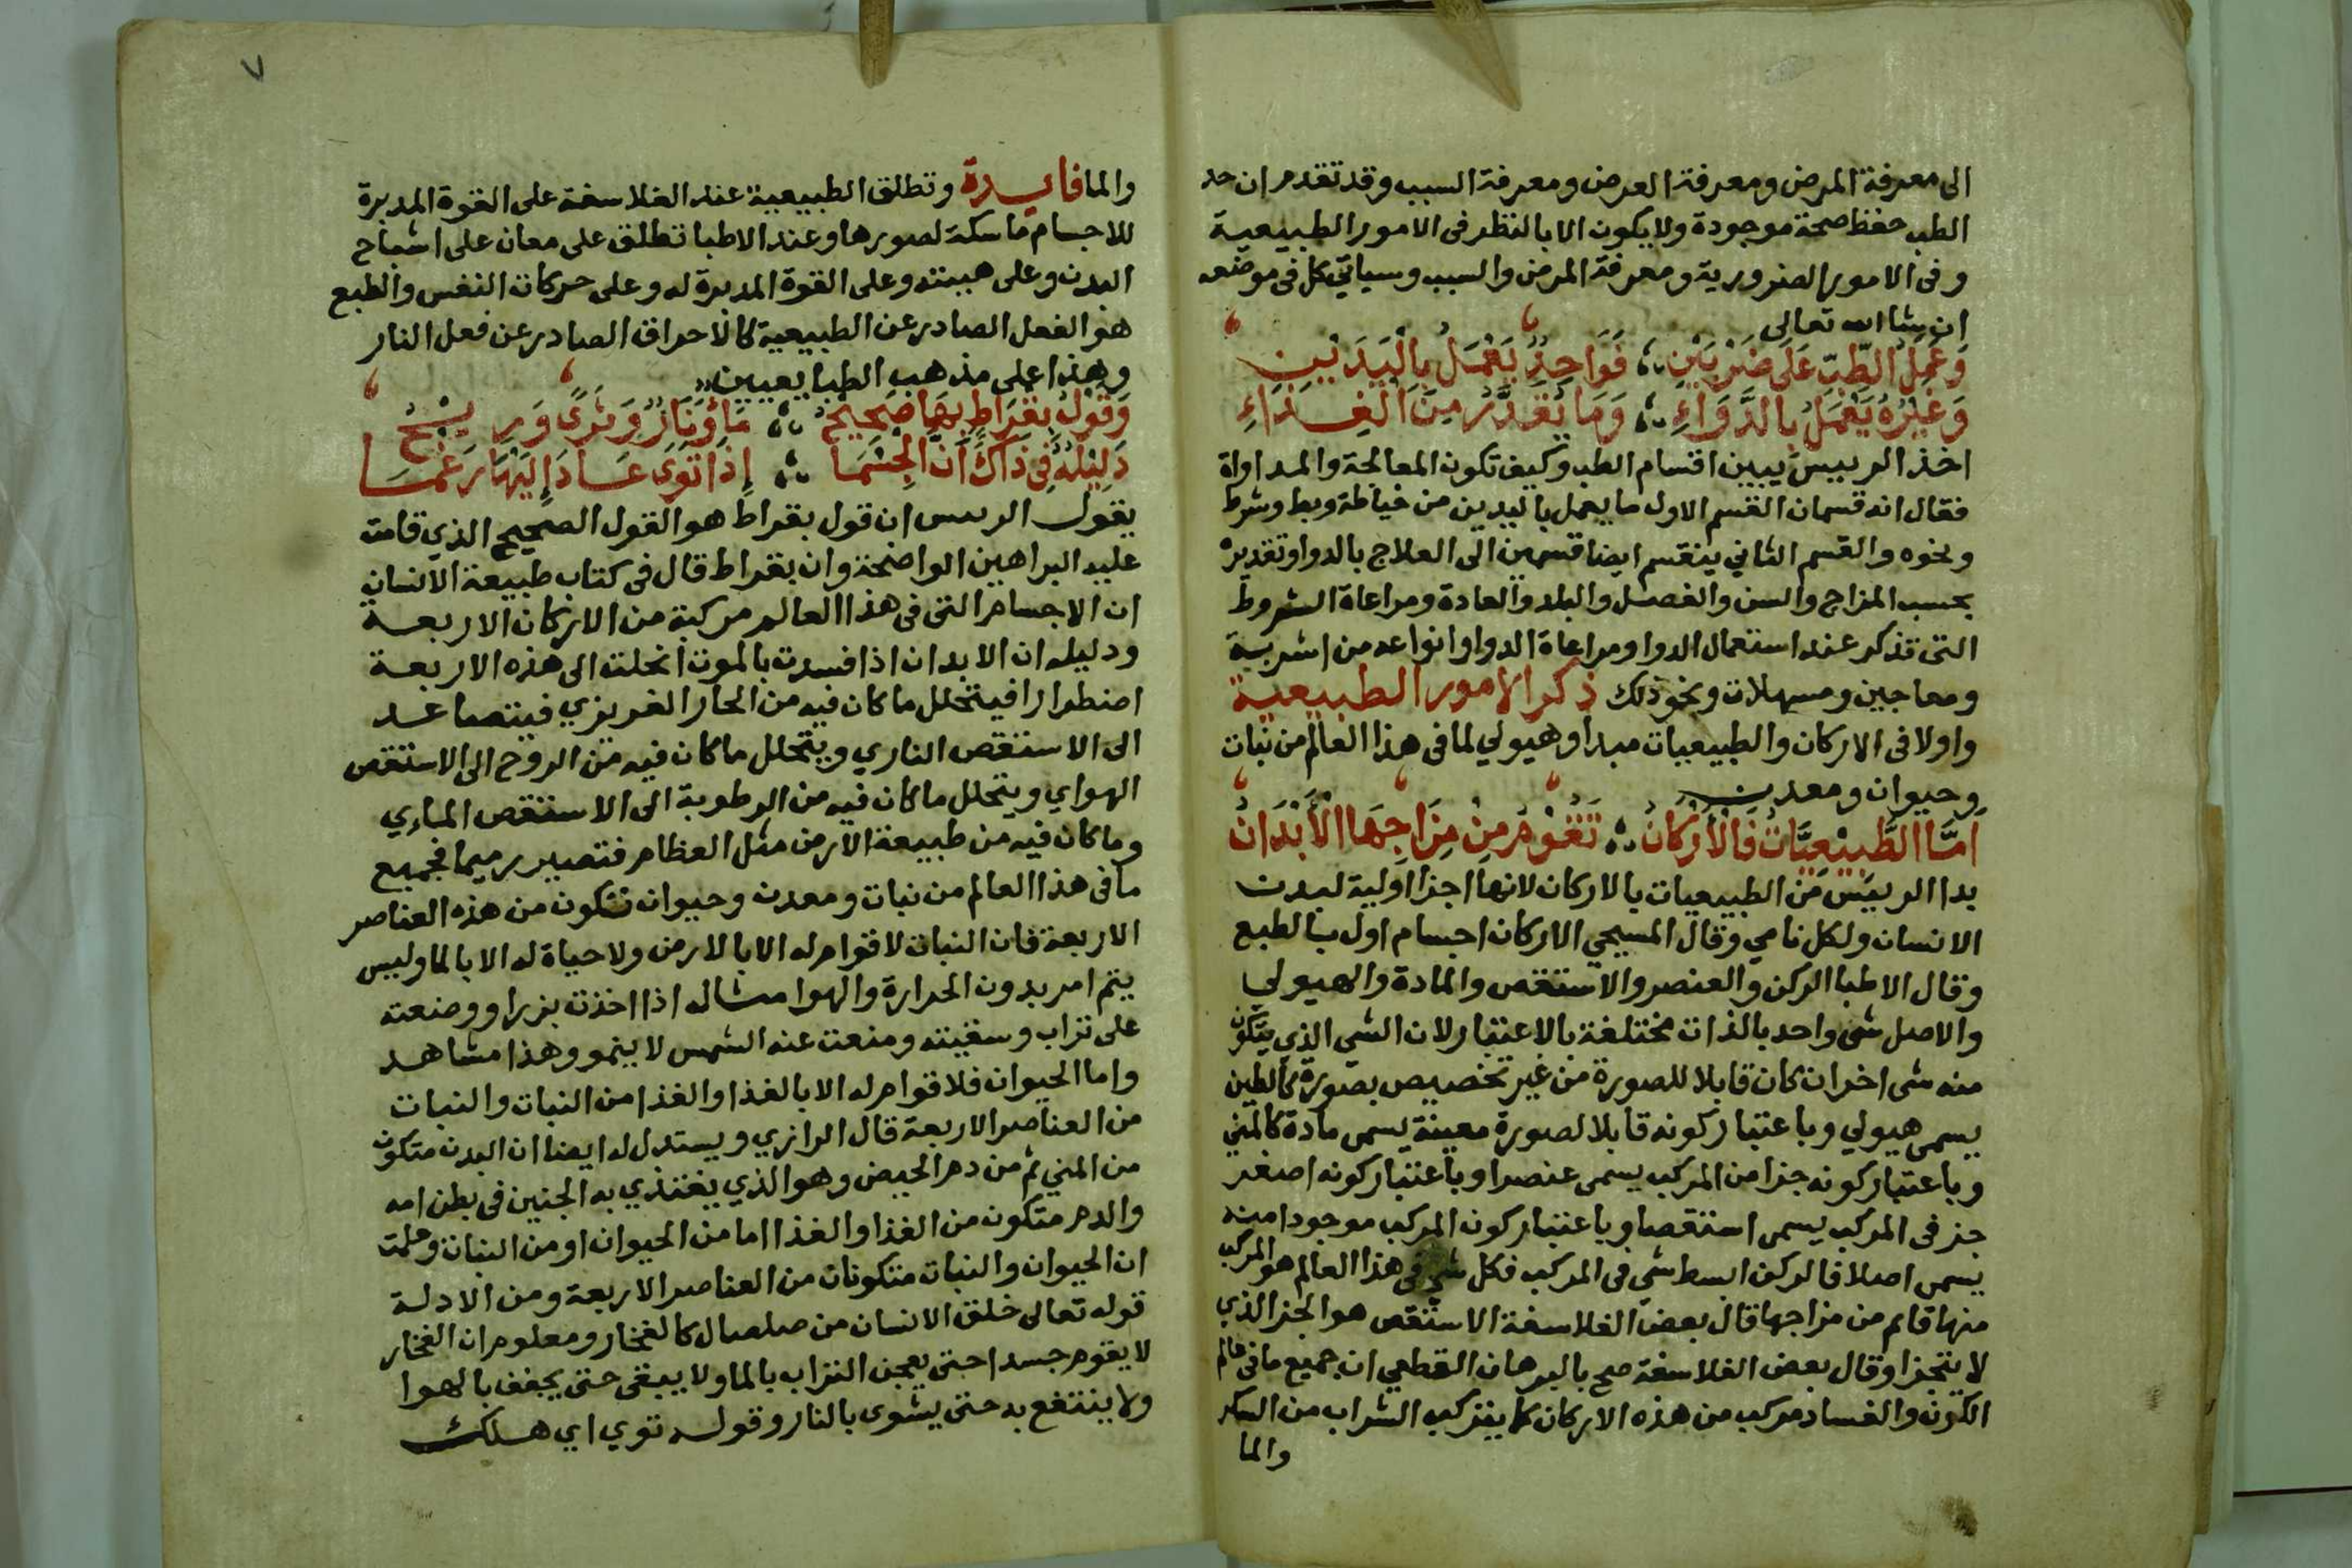 الى معرفة المرض ومعرفة العرض ومعرفة السبب وقد تقدم ان حد
الطب حفظ صحة موجودة ولا يكون الا بالنظر فى الامور الطبيعية
وفى الامور الضرورية ومعرفة المرض والسبب وسياتي كل فى موضعه
ان شا الله تعالى
وَعَمَلُ الطِّبِّ عَلَى ضَرْبَيْنِ فَوَاحِدٌ يَعْمَلُ بِالْيَدَيْنِ
وَغَيْرُهُ يَعْمَلُ بِالدَّوَاءِ وَمَا يُقَدَّرُ مِنَ الْغِذَاءِ
اخذ الرييس يبين اقسام الطب وكيف تكون المعالجة والمداواة
فقال انه قسمان القسم الاول ما يعمل باليدين من خياطة وبط وشرط
ونحوه والقسم الثاني ينقسم ايضا قسمين الى العلاج بالدوا وتقديره
بحسب المزاج والسن والفصل والبلد والعادة ومراعاة الشروط
التى تذكر عند استعمال الدوا ومراعاة الدوا وانواعه من اشربة
ومعاجين ومسهلات ونحو ذلك ذكر الامور الطبيعية
واولا فى الاركان والطبيعيات مبدا وهيولي لما فى هذا العالم من نبات
وحيوان ومعدن
اَمَّا الطَّبِيْعِيَّاتُ فَالْأَرْكَانُ تَقُوْمُ مِنْ مِزَاجِهَا الْأَبْدَانُ
بدا الرييس من الطبيعيات بالاركان لانها اجزا اولية لبدن
الانسان ولكل نامي وقال المسيحي الاركان اجسام اول بالطبع
وقال الاطبا الركن والعنصر والاستقص والمادة والهيولي
والاصل شى واحد بالذات مختلفة بالاعتبار لان الشي الذي يتكون
منه شى اخر ان كان قابلا للصورة من غير تخصيص بصورة كالطين
يسمى هيولي وباعتبار كونه قابلا لصورة معينة يسمى مادة كالمني
وباعتبار كونه جزا من المركب يسمى عنصرا وباعتبار كونه اصغر
جز فى المركب يسمى استقصا وباعتبار كون المركب موجودا منه
يسمى اصلا فالركن ابسط شي فى المركب فكل شي فى هذا العالم هو المركب
منها قايم من مزاجها قال بعض الفلاسفة الاستقص هو الجز الذي
لا يتجزا وقال بعض الفلاسفة صح بالبرهان القطعي ان جميع ما فى عالم
الكون والفساد مركب من هذه الاركان كما يتركب الشراب من السكر
والما
٧
والما فايدة وتطلق الطبيعية عند الفلاسفة على القوة المدبرة
للاجسام ماسكة لصورها وعند الاطبا تطلق على معان على اشباح
البدن وعلى هيئته وعلى القوة المدبرة له وعلى حركات النفس والطبع
هو الفعل الصادر عن الطبيعية كالاحراق الصادر عن فعل النار
وهذا على مذهب الطبايعيين
وَقَوْلُ بُقْرَاطٍ بِهَا صَحِيْحُ مَاءٌ وَنَارٌ وَثَرًى وَرِيْحُ
دَلِيْلُهُ فِى ذَاكَ أَنَّ الْجِسْمَا إِذَا تَوَى عَادَ إِلَيْهَا رَغْمَا
يقول الرييس ان قول بقراط هو القول الصحيح الذي قامت
عليه البراهين الواضحة وان بقراط قال فى كتاب طبيعة الانسان
ان الاجسام التى فى هذا العالم مركبة من الاركان الاربعة
ودليله ان الابدان اذا فسدت بالموت انحلت الى هذه الاربعة
اضطرارا فيتحلل ما كان فيه من الحار الغريزي فيتصاعد
الى الاستقص الناري ويتحلل ما كان فيه من الروح الى الاستقص
الهواي ويتحلل ما كان فيه من الرطوبة الى الاستقص الماءي
وما كان فيه من طبيعة الارض مثل العظام فتصير رميما فجميع
ما فى هذا العالم من نبات ومعدن وحيوان تتكون من هذه العناصر
الاربعة فان النبات لا قوام له الا بالارض ولا حياة له الا بالما وليس
يتم امر بدون الحرارة والهوا مثاله اذا اخذت بزرا ووضعته
على تراب وسقيته ومنعت عنه الشمس لا ينمو وهذا مشاهد
واما الحيوان فلا قوام له الا بالغذا والغذا من النبات والنبات
من العناصر الاربعة قال الرازي ويستدل له ايضا ان البدن متكون
من المني ثم من دم الحيض وهو الذي يغتذي به الجنين فى بطن امه
والدم متكون من الغذا والغذا اما من الحيوان او من النبات وعلمت
ان الحيوان والنبات متكونات من العناصر الاربعة ومن الادلة
قوله تعالى خلق الانسان من صلصال كالفخار ومعلوم ان الفخار
لا يقوم جسدا حتى يعجن التراب بالما ولا يبقى حتى يجفف بالهوا
ولا ينتفع به حتى يشوى بالنار وقوله توي اي هلك